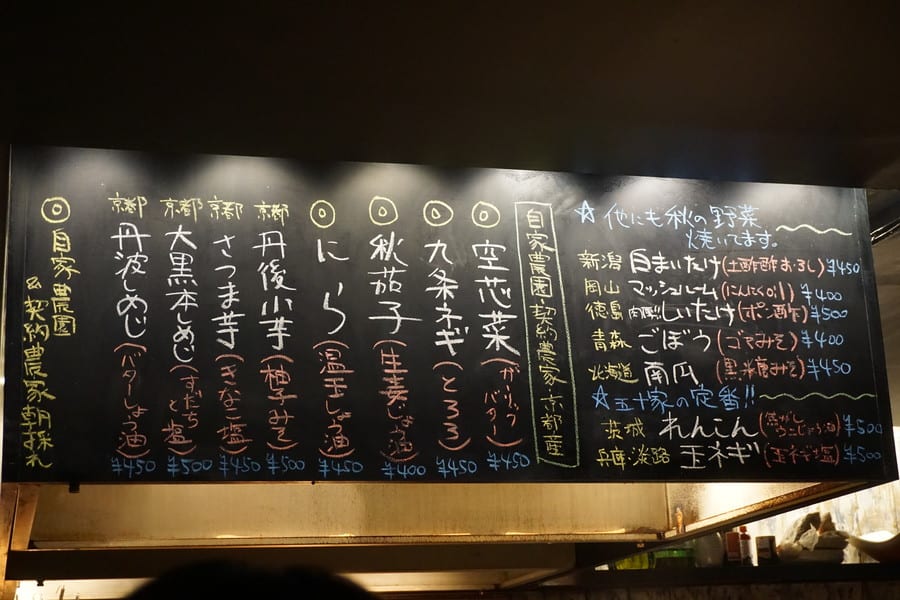 ☆他にも秋の野菜
焼いてます。
新潟 白まいたけ(土酢酢おろし) ¥450
岡山 マッシュルーム(にんにく) ¥400
徳島 肉厚!!しいたけ(ポン酢) ¥500
青森 ごぼう(ゴマみそ) ¥400
北海道 南瓜(黒糖みそ) ¥450
☆五十家の定番!!
茨城 れんこん(焦がしらーじょう油) ¥500
兵庫・淡路 玉ネギ(玉ネギ塩) ¥500
自家農園・契約農家 京都産
◎ 空芯菜(ガーリックバター) ¥450
◎ 九条ネギ(とろろ) ¥450
◎ 秋茄子(生姜じょう油) ¥400
◎ にら(温玉しょう油) ¥450
京都 丹後小芋(柚子みそ) ¥500
京都 さつま芋(きなこ塩) ¥450
京都 大黒本しめじ(すだちと塩) ¥500
京都 丹波しめじ(バターしょう油) ¥450
◎ 自家農園
&契約農家朝採れ